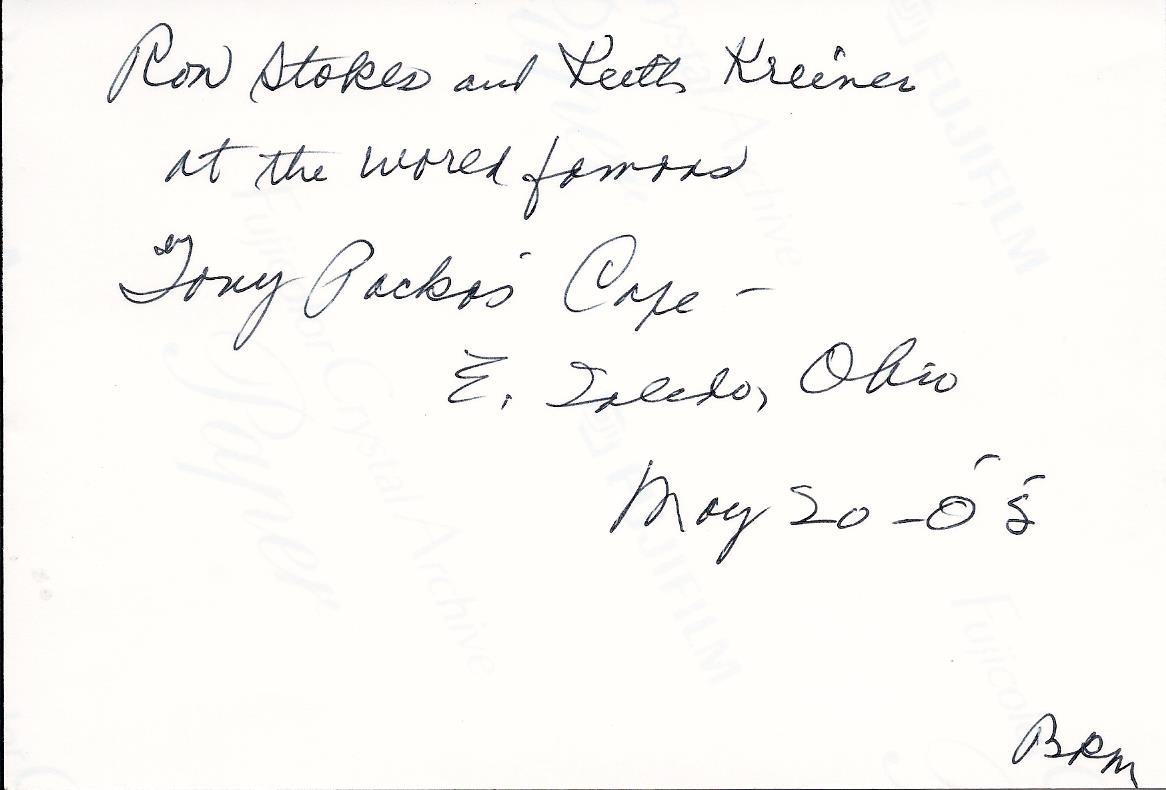 Ron Stokes and Keith Kreiner
at the world famous
Tony Packo's Cafe -
E. Toledo, Ohio
May 20 - 0'8
BRM
FUJIFILM
Crystal Archive
Fujicolor Crystal Archive
Paper
FUJIFILM
Fujicolor